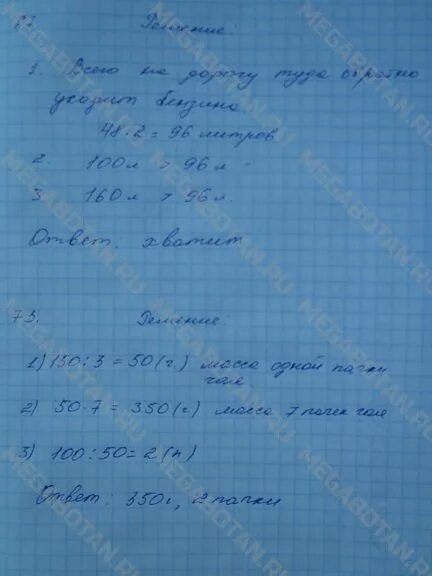 Решение:
1. Всего на дорогу туда обратно
уходит бензина.
48·2 = 96 литров
2. 100л > 96л
3. 160л > 96л.
Ответ. хватит
73. Решение:
1) 150:3 = 50 (г.) масса одной пачки
чая
2) 50·7 = 350 (г) масса 7 пачек чая
3) 100:50 = 2 (п)
Ответ: 350г, 2 пачки
MEGABOTAN.RU